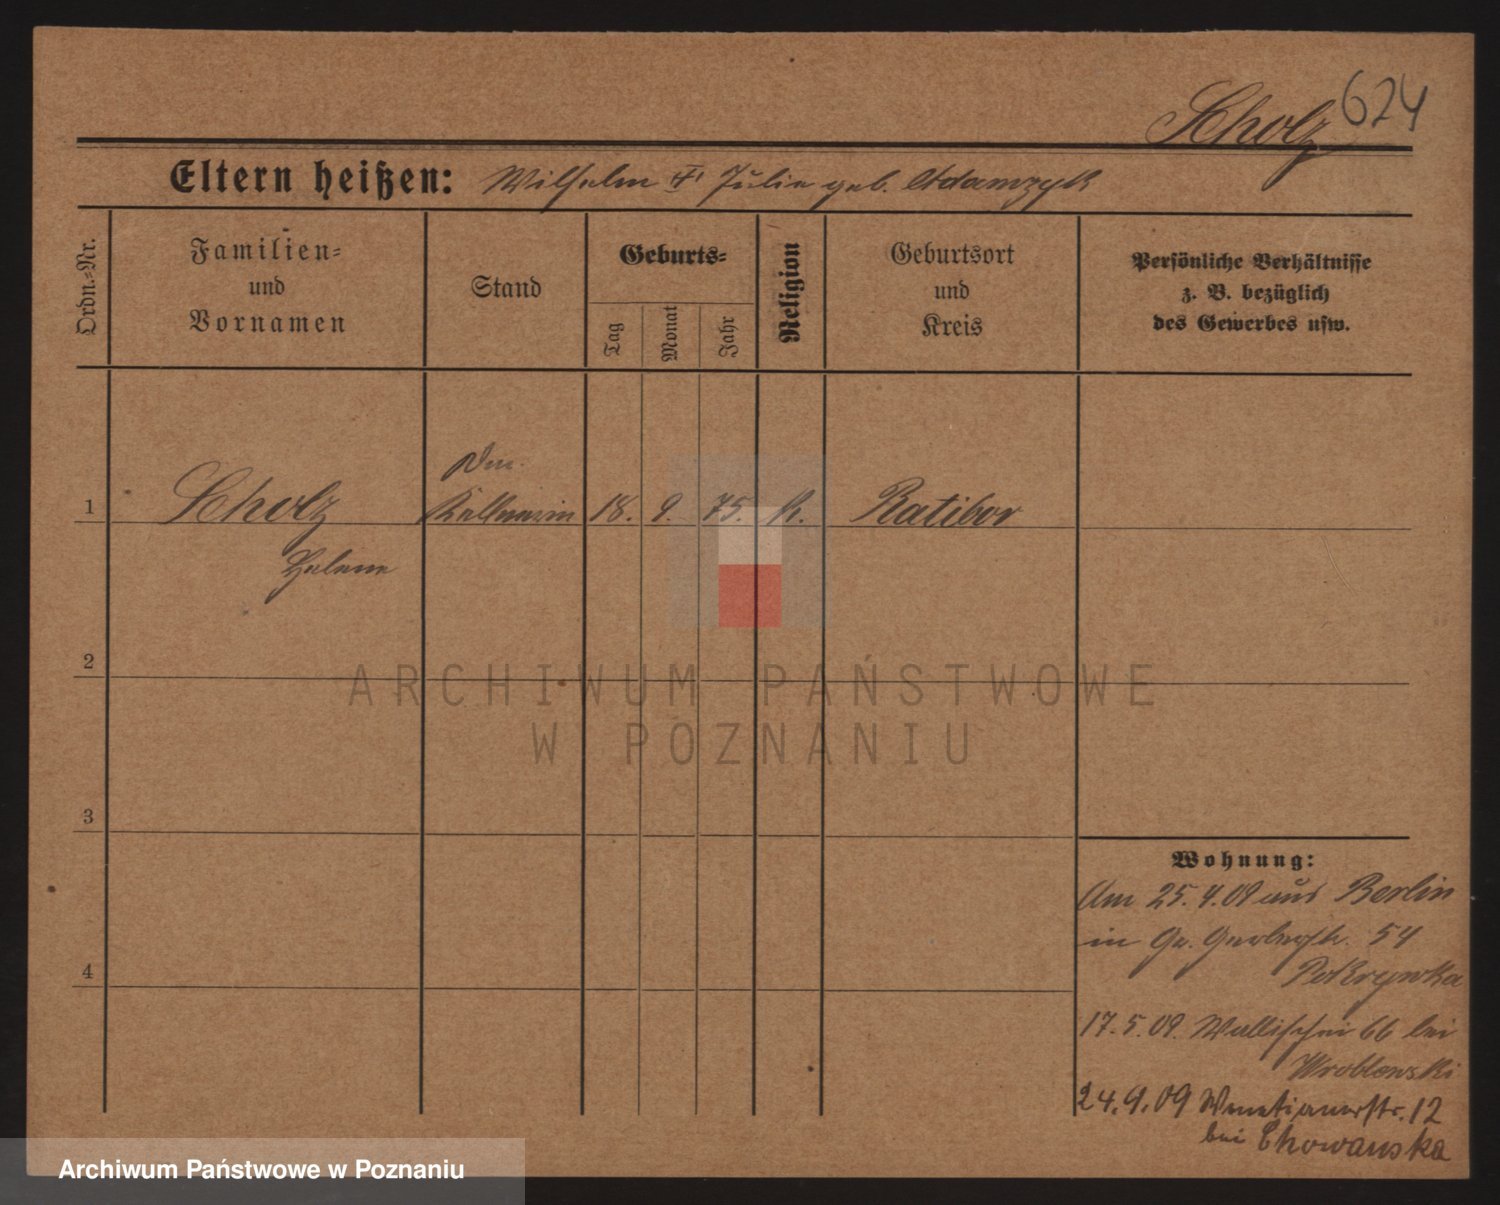 Scholz 624
Eltern heißen: Wilhelm u. Julie geb. Adamczyk
Ordn.-Nr.
Familien-
und
Vornamen
Stand
Geburts-
Tag
Monat
Jahr
Religion
Geburtsort
und
Kreis
Persönliche Verhältnisse
z. B. bezüglich
des Gewerbes usw.
1 Scholz Kellnerin 18. 9. 75. K. Ratibor
Helene
2
3
4
Wohnung:
Am 25.4.09 aus Berlin
in Gr. Gerberstr. 54
Pokrywka
17.5.09. Wallischei 66 bei
Wroblewski
24.9.09 Venetianerstr. 12
bei Chowanska
ARCHIWUM PAŃSTWOWE
W POZNANIU
Archiwum Państwowe w Poznaniu